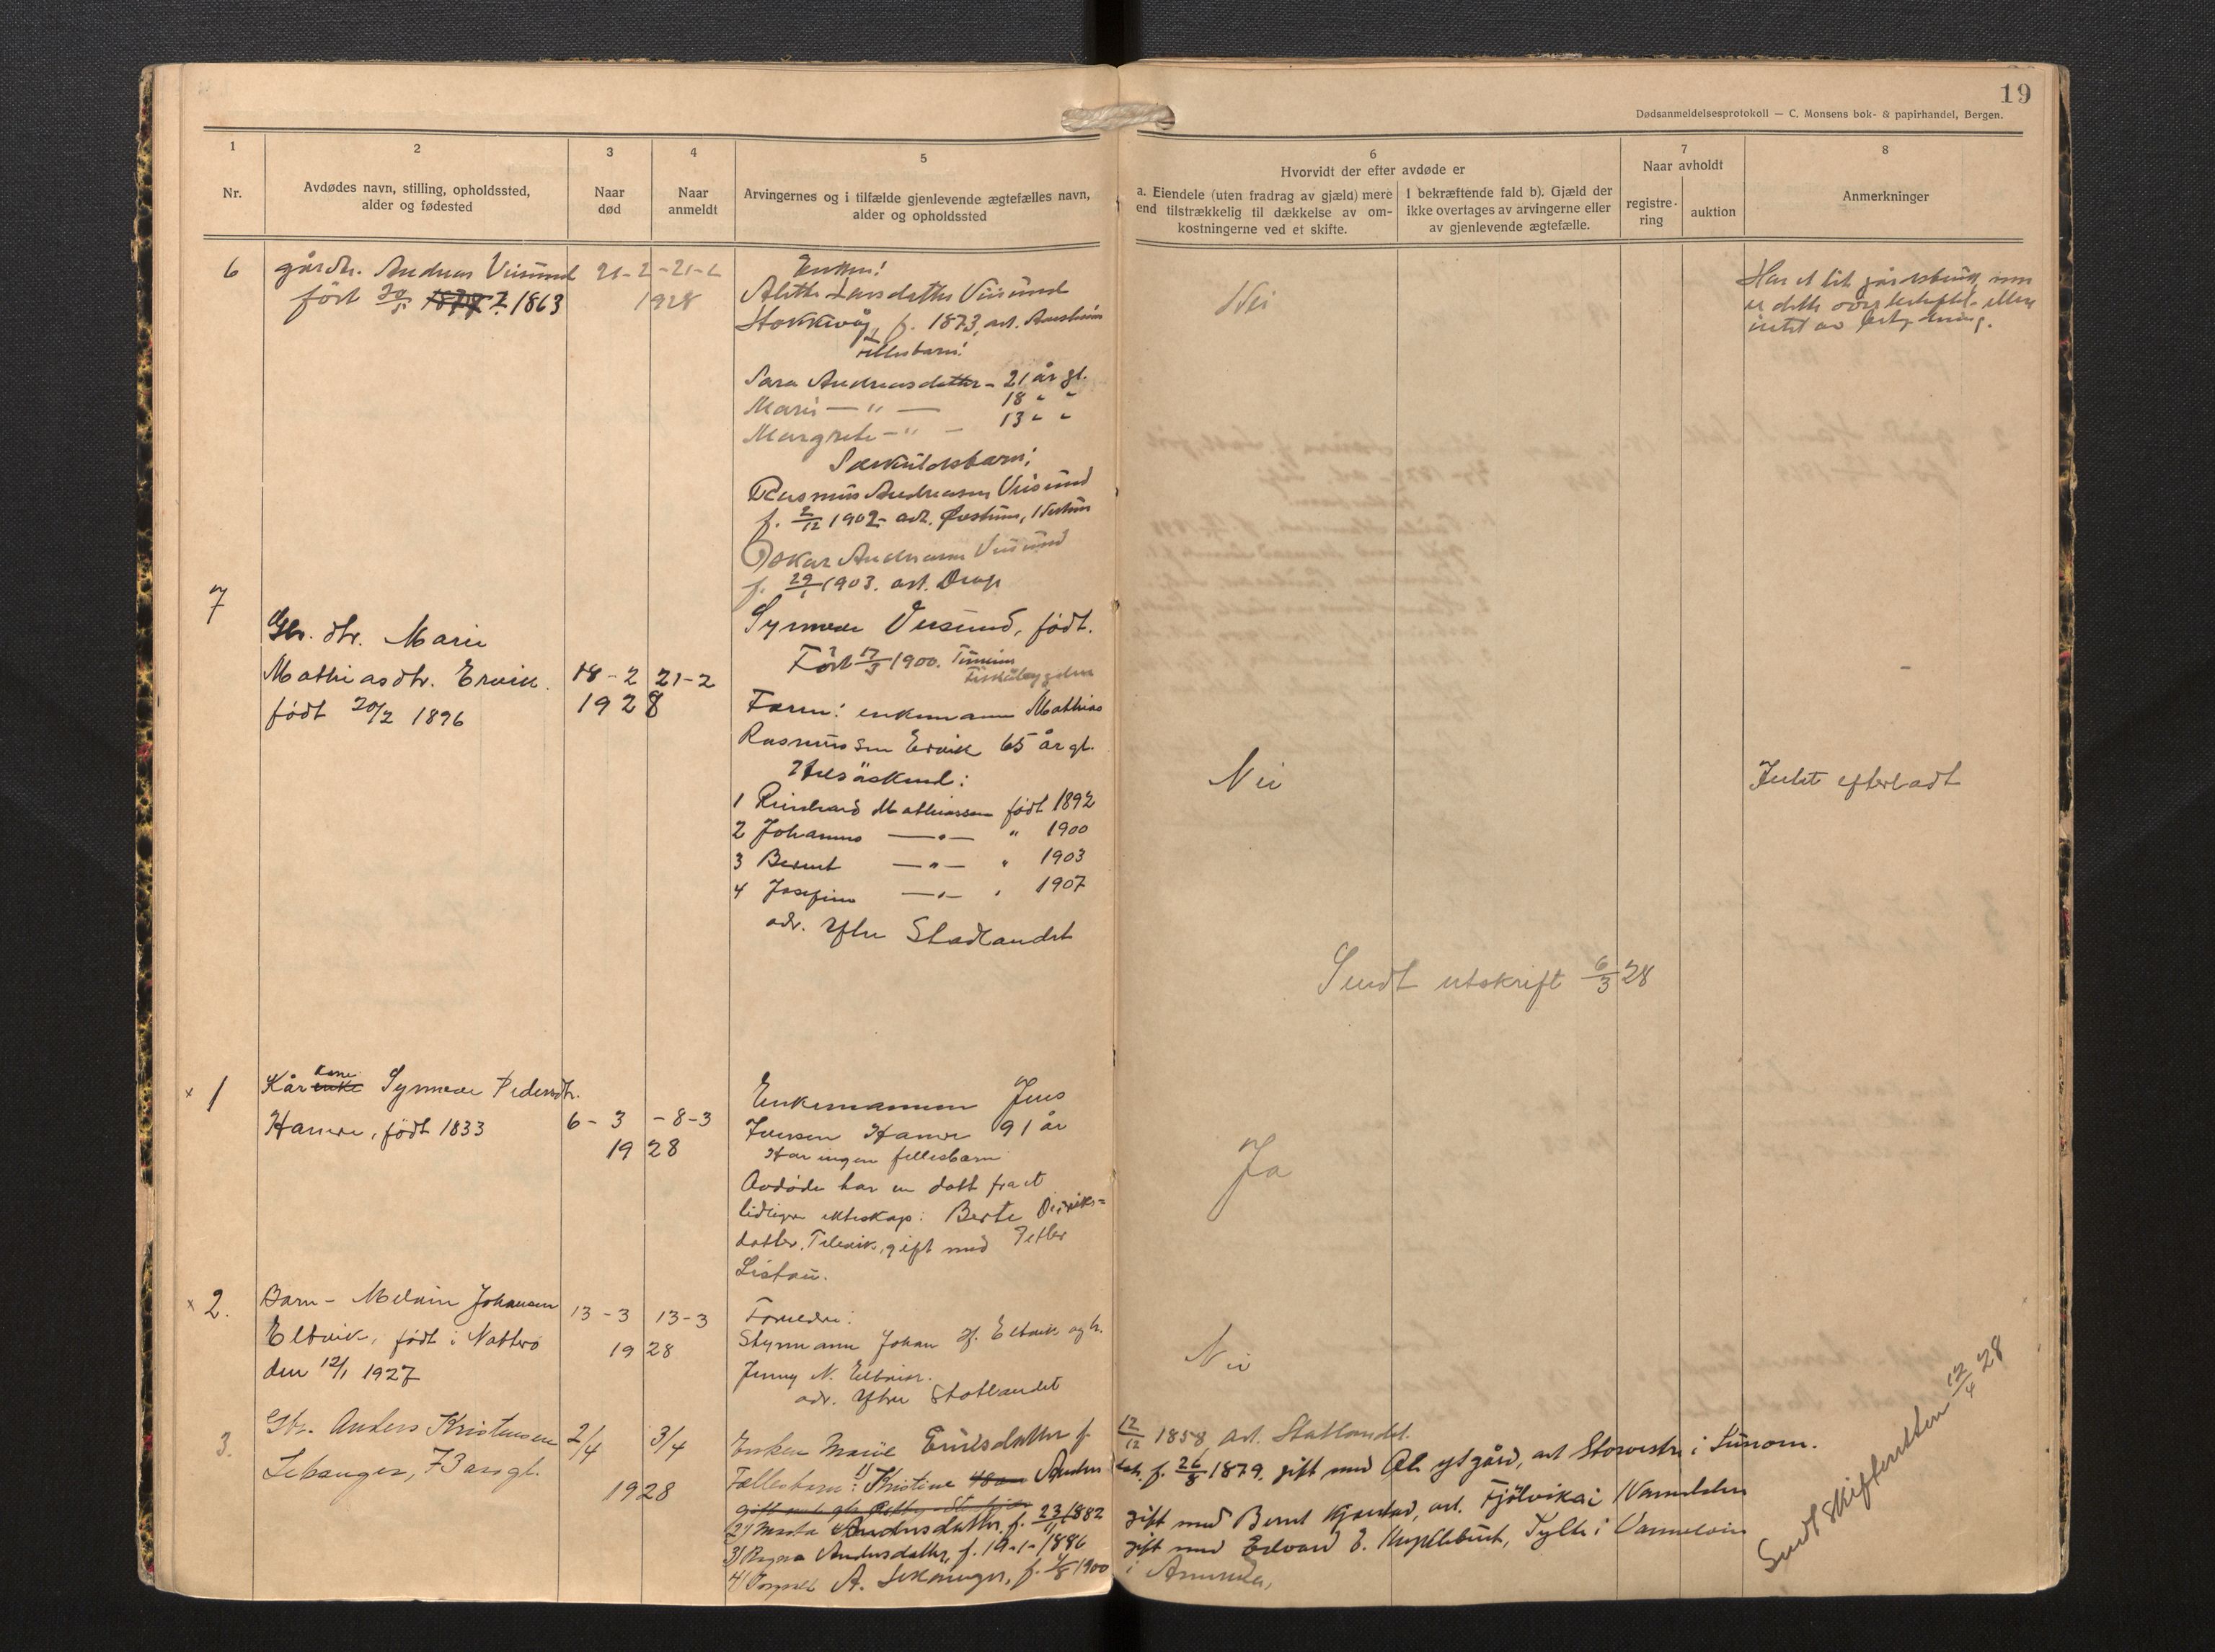 19
Dødsanmeldelsesprotokoll — C. Monsens bok- & papirhandel, Bergen.
1
Nr.
2
Avdødes navn, stilling, opholdssted,
alder og fødested
3
Naar
død
4
Naar
anmeldt
5
Arvingernes og i tilfælde gjenlevende ægtefælles navn,
alder og opholdssted
6
Hvorvidt der efter avdøde er
a. Eiendele (uten fradrag av gjæld) mere
end tilstrækkelig til dækkelse av om-
kostningerne ved et skifte.
I bekræftende fald b). Gjæld der
ikke overtages av arvingerne eller
av gjenlevende ægtefælle.
7
Naar avholdt
registre-
ring
auktion
8
Anmerkninger
6
gårdbr. Andreas Veisund
født 1863
21-2-21-2
1928
Enken:
Larsdatter Veisund
f. 1873, adr.
Fellesbarn:
Sara Andreasdatter - 21 år gl.
Marie — " — 18 " "
Margrete — " — 13 " "
Særkuldsbarn:
Rasmus Andreassen Veisund
f. 2/12 1902 adr.
Oskar Andreassen Veisund
f. 29/1 1903. adr.
Synneve Veisund, født.
Født 17/3 1900.
Nei
Har et lit gårdsbruk, men
er dette
intet av betydning.
7
Gbr. dtr. Marie
Mathiasdtr. Ervik.
født 20/2 1896
18-2 21-2
1928
Faren: enkemann Mathias
Rasmussen Ervik 65 år gl.
Helsøskend:
1 Reinhard Mathiassen født 1892
2 Johannes —"— " 1900
3 Bernt —"— " 1903
4 Josefine —"— " 1907
adr. Ytre Stadlandet
Nei
Intet efterladt
Sendt utskrift 6/3 28
x 1
Kår enke kone Synneve Pedersdtr.
Hamre, født 1833
6-3 - 8-3
1928
Enkemannen Jens
Iversen Hamre 91 år
Har ingen fellesbarn
Avdøde har en datt fra et
tidligere ekteskap: Berte Diriks=
datter, gift med Petter
Listau.
Ja
x 2.
Barn - Melvin Johansen
Eltvik, født i
den 12/1 1927
13-3 13-3
1928
Foreldre:
Styrmann Johan H. Eltvik og h.
Jenny N. Eltvik.
adr. Ytre Statlandet
Nei
3.
Gbr. Anders Kristensen
Lekanger, 73 år gl.
2/4 3/4
1928
Enken Marie Eriksdatter f. 12/12 1858, adr. Statlandet.
Fællesbarn: 1) Kristine Anders dat. f. 26/8 1879, gift med i
2) Marta Andersdatter. f. 23/11 1882 gift med Bernt adr. i Vannelven
3) Andersdatter, f. 19-1-1886 gift med Edvard E. i Vannelven
4) A. Lekanger, f. 4/8 1900 i Amerika,
Sendt skifteretten 12/4 28